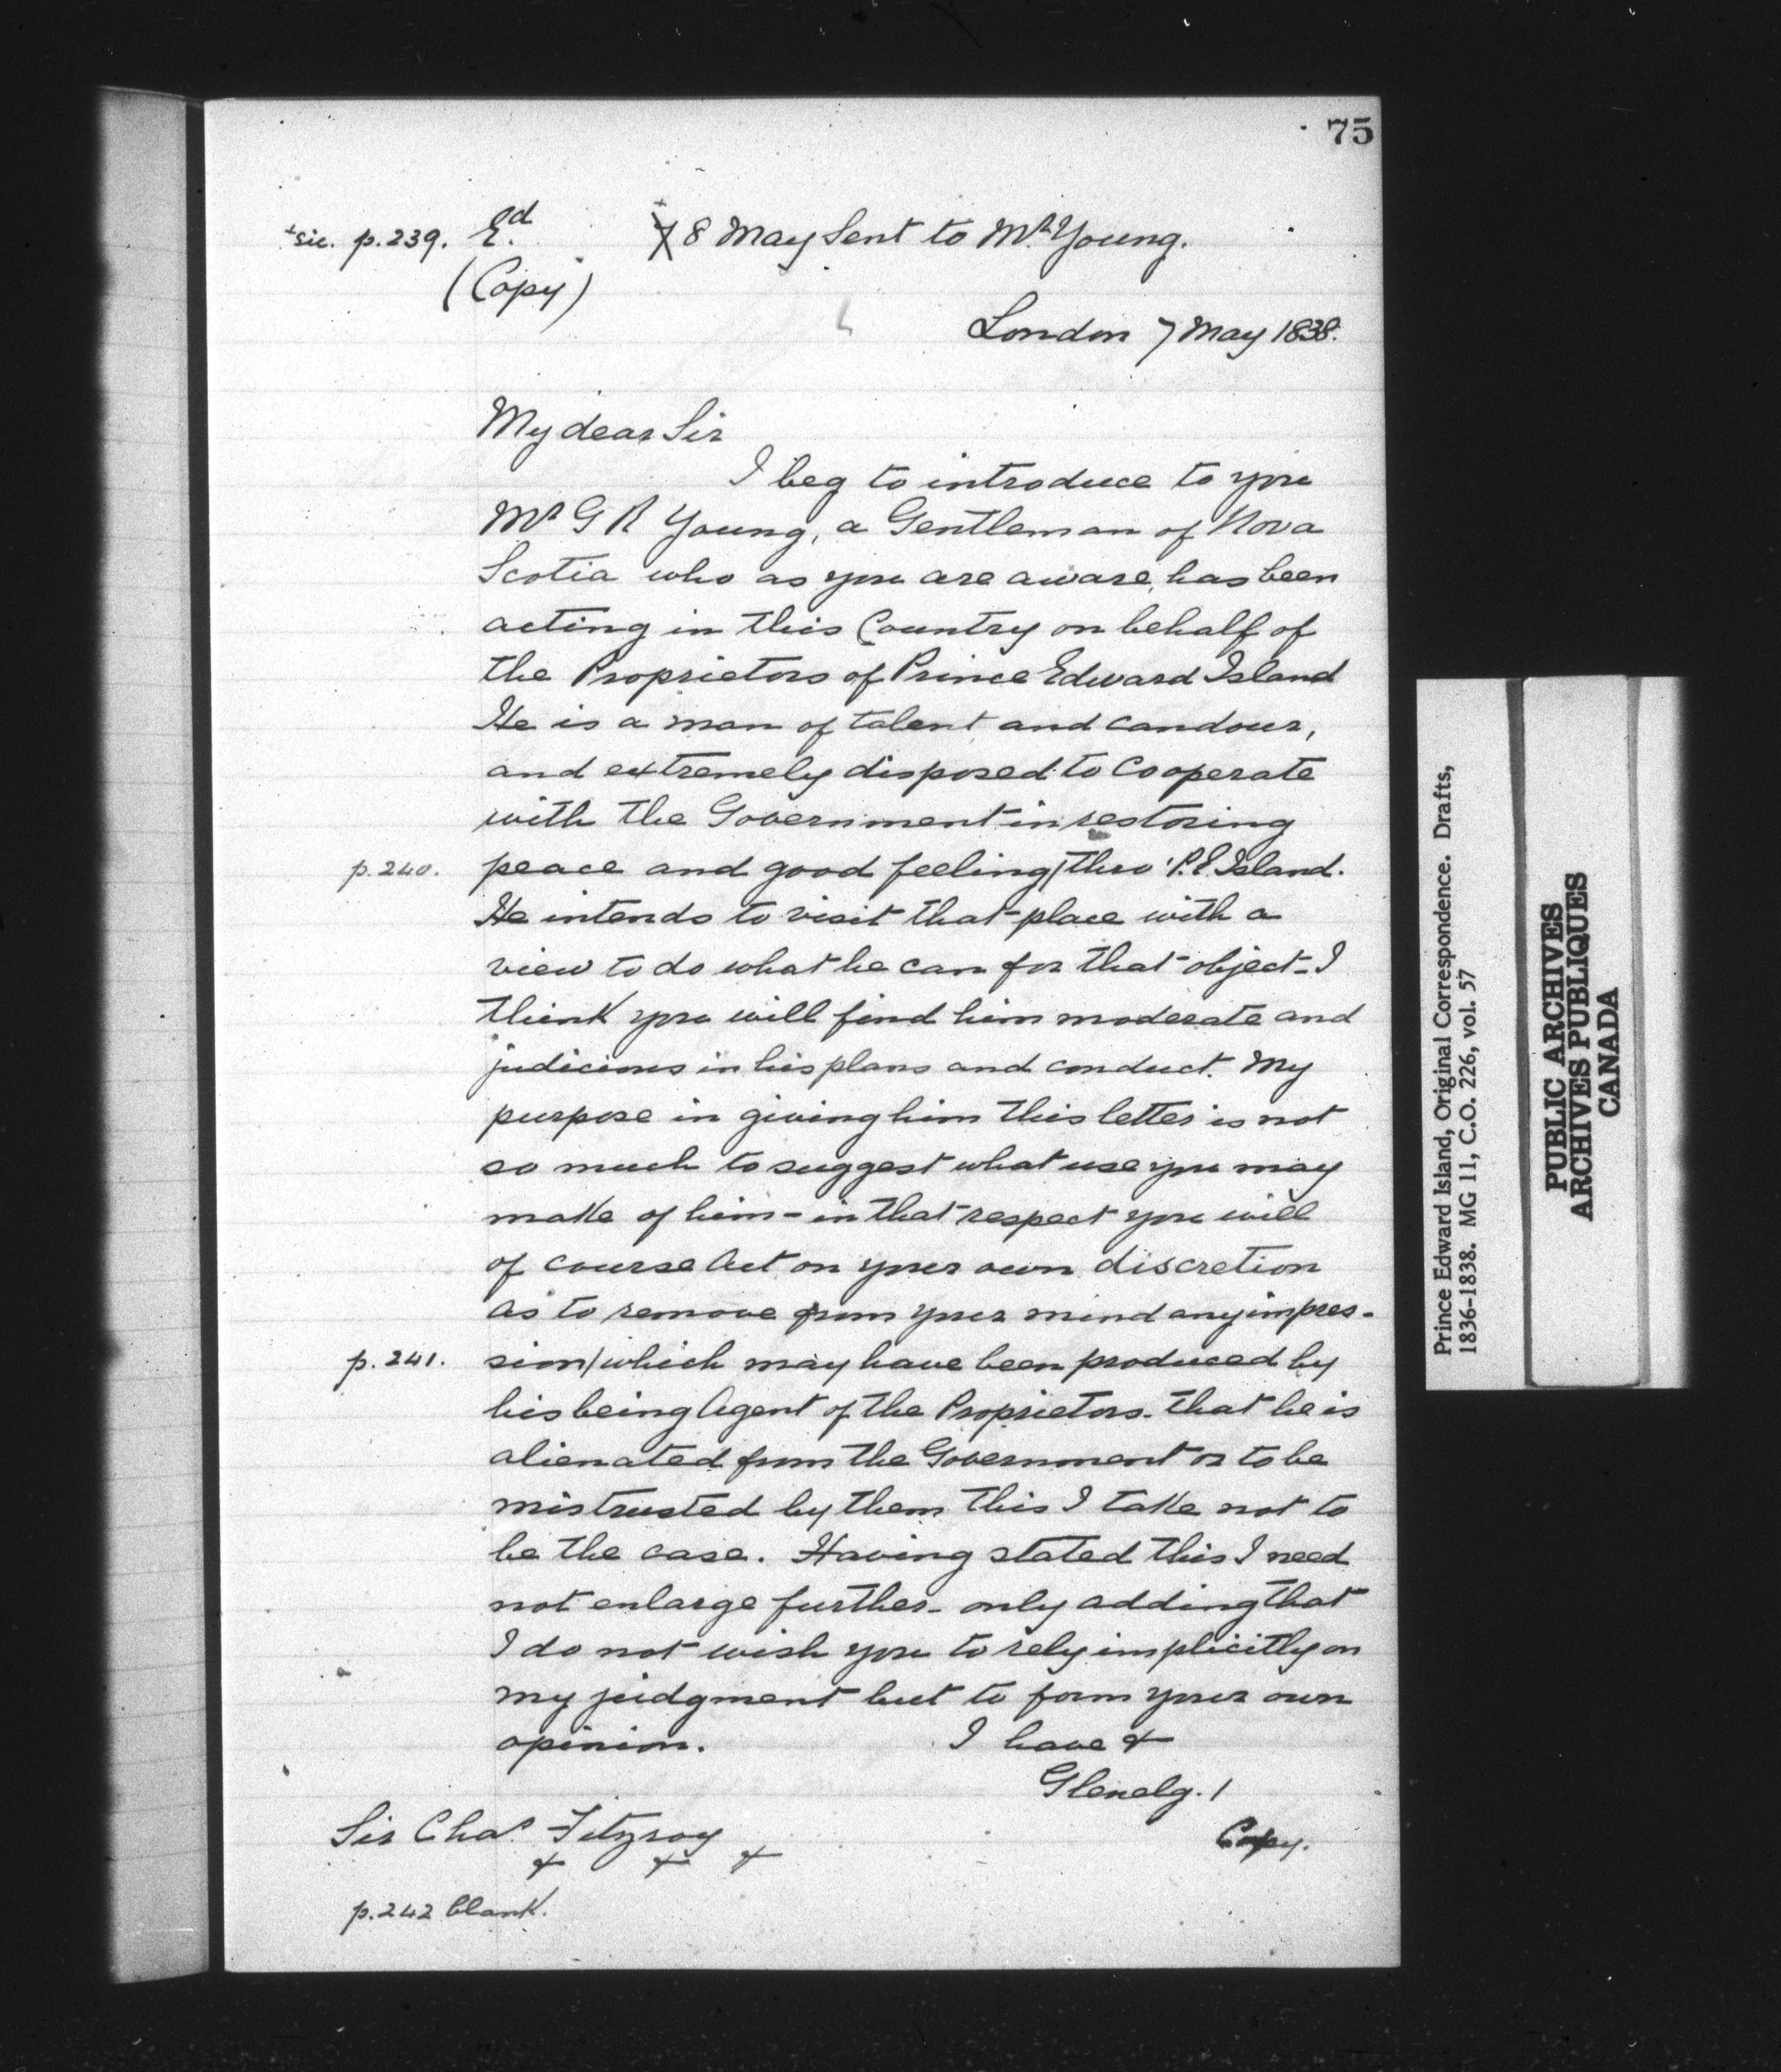 75
+sic. p.239. Ed. 7 8 May Sent to Mr Young.
(Copy)
London 7 May 1838.
My dear Sir
I beg to introduce to you
Mr G R Young, a Gentleman of Nova
Scotia who as you are aware, has been
acting in this Country on behalf of
the Proprietors of Prince Edward Island
He is a man of talent and candour,
and extremely disposed to Cooperate
with the Government in restoring
p.240. peace and good feeling/thro' P.E. Island.
He intends to visit that place with a
view to do what he can for that object - I
think you will find him moderate and
judicious in his plans and conduct. My
purpose in giving him this letter is not
so much to suggest what use you may
make of him - in that respect you will
of course Act on your own discretion
as to remove from your mind any impres-
p.241. sion/which may have been produced by
his being Agent of the Proprietors. that he is
alienated from the Government or to be
mistrusted by them this I take not to
be the case. Having stated this I need
not enlarge further - only adding that
I do not wish you to rely implicitly on
my judgment but to form your own
opinion. I have &
Glenelg. /
Sir Chas. Fitzroy Copy.
& & &
p.242 blank.
Prince Edward Island, Original Correspondence. Drafts,
1836-1838. MG 11, C.O. 226, vol. 57
PUBLIC ARCHIVES
ARCHIVES PUBLIQUES
CANADA